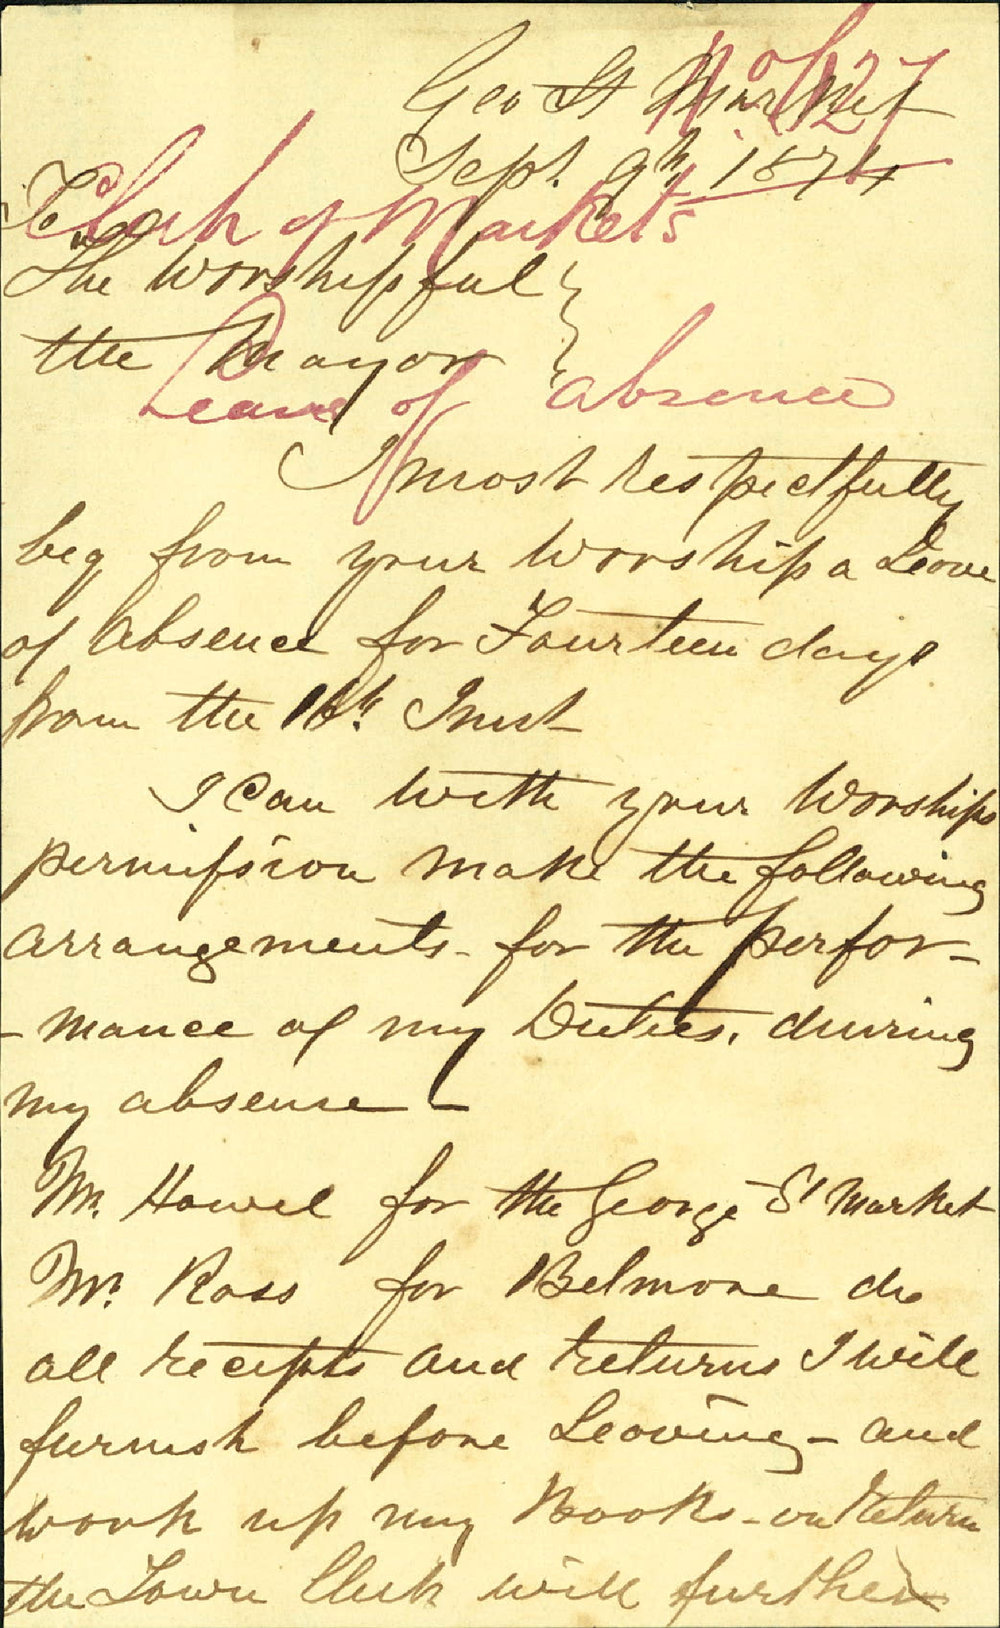 No 827
Geo St Market
Sept. 9th, 1874
Clerk of Markets
To
The Worshipful
the Mayor
Leave of absence
I most respectfully
beg from your Worship a Leave
of Absence for Fourteen days
from the Inst
I Can with your Worships
permission make the following
arrangements - for the Perfor-
-mance of my Duties, during
my absence -
Mr. Howel for the George St Market
Mr. Ross for Belmore do
all receipts and returns I will
furnish before Leaving - and
work up my Books - on return
the Town Clerk will further